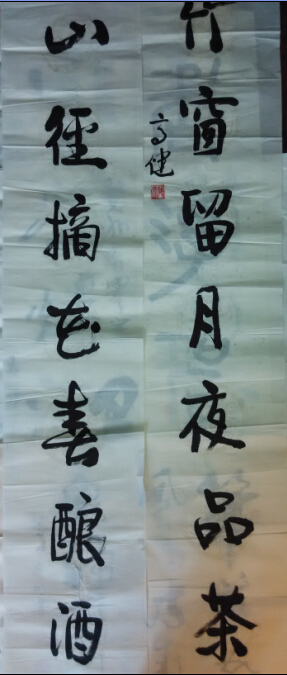 竹窗留月夜品茶
山径摘花春酿酒
高健